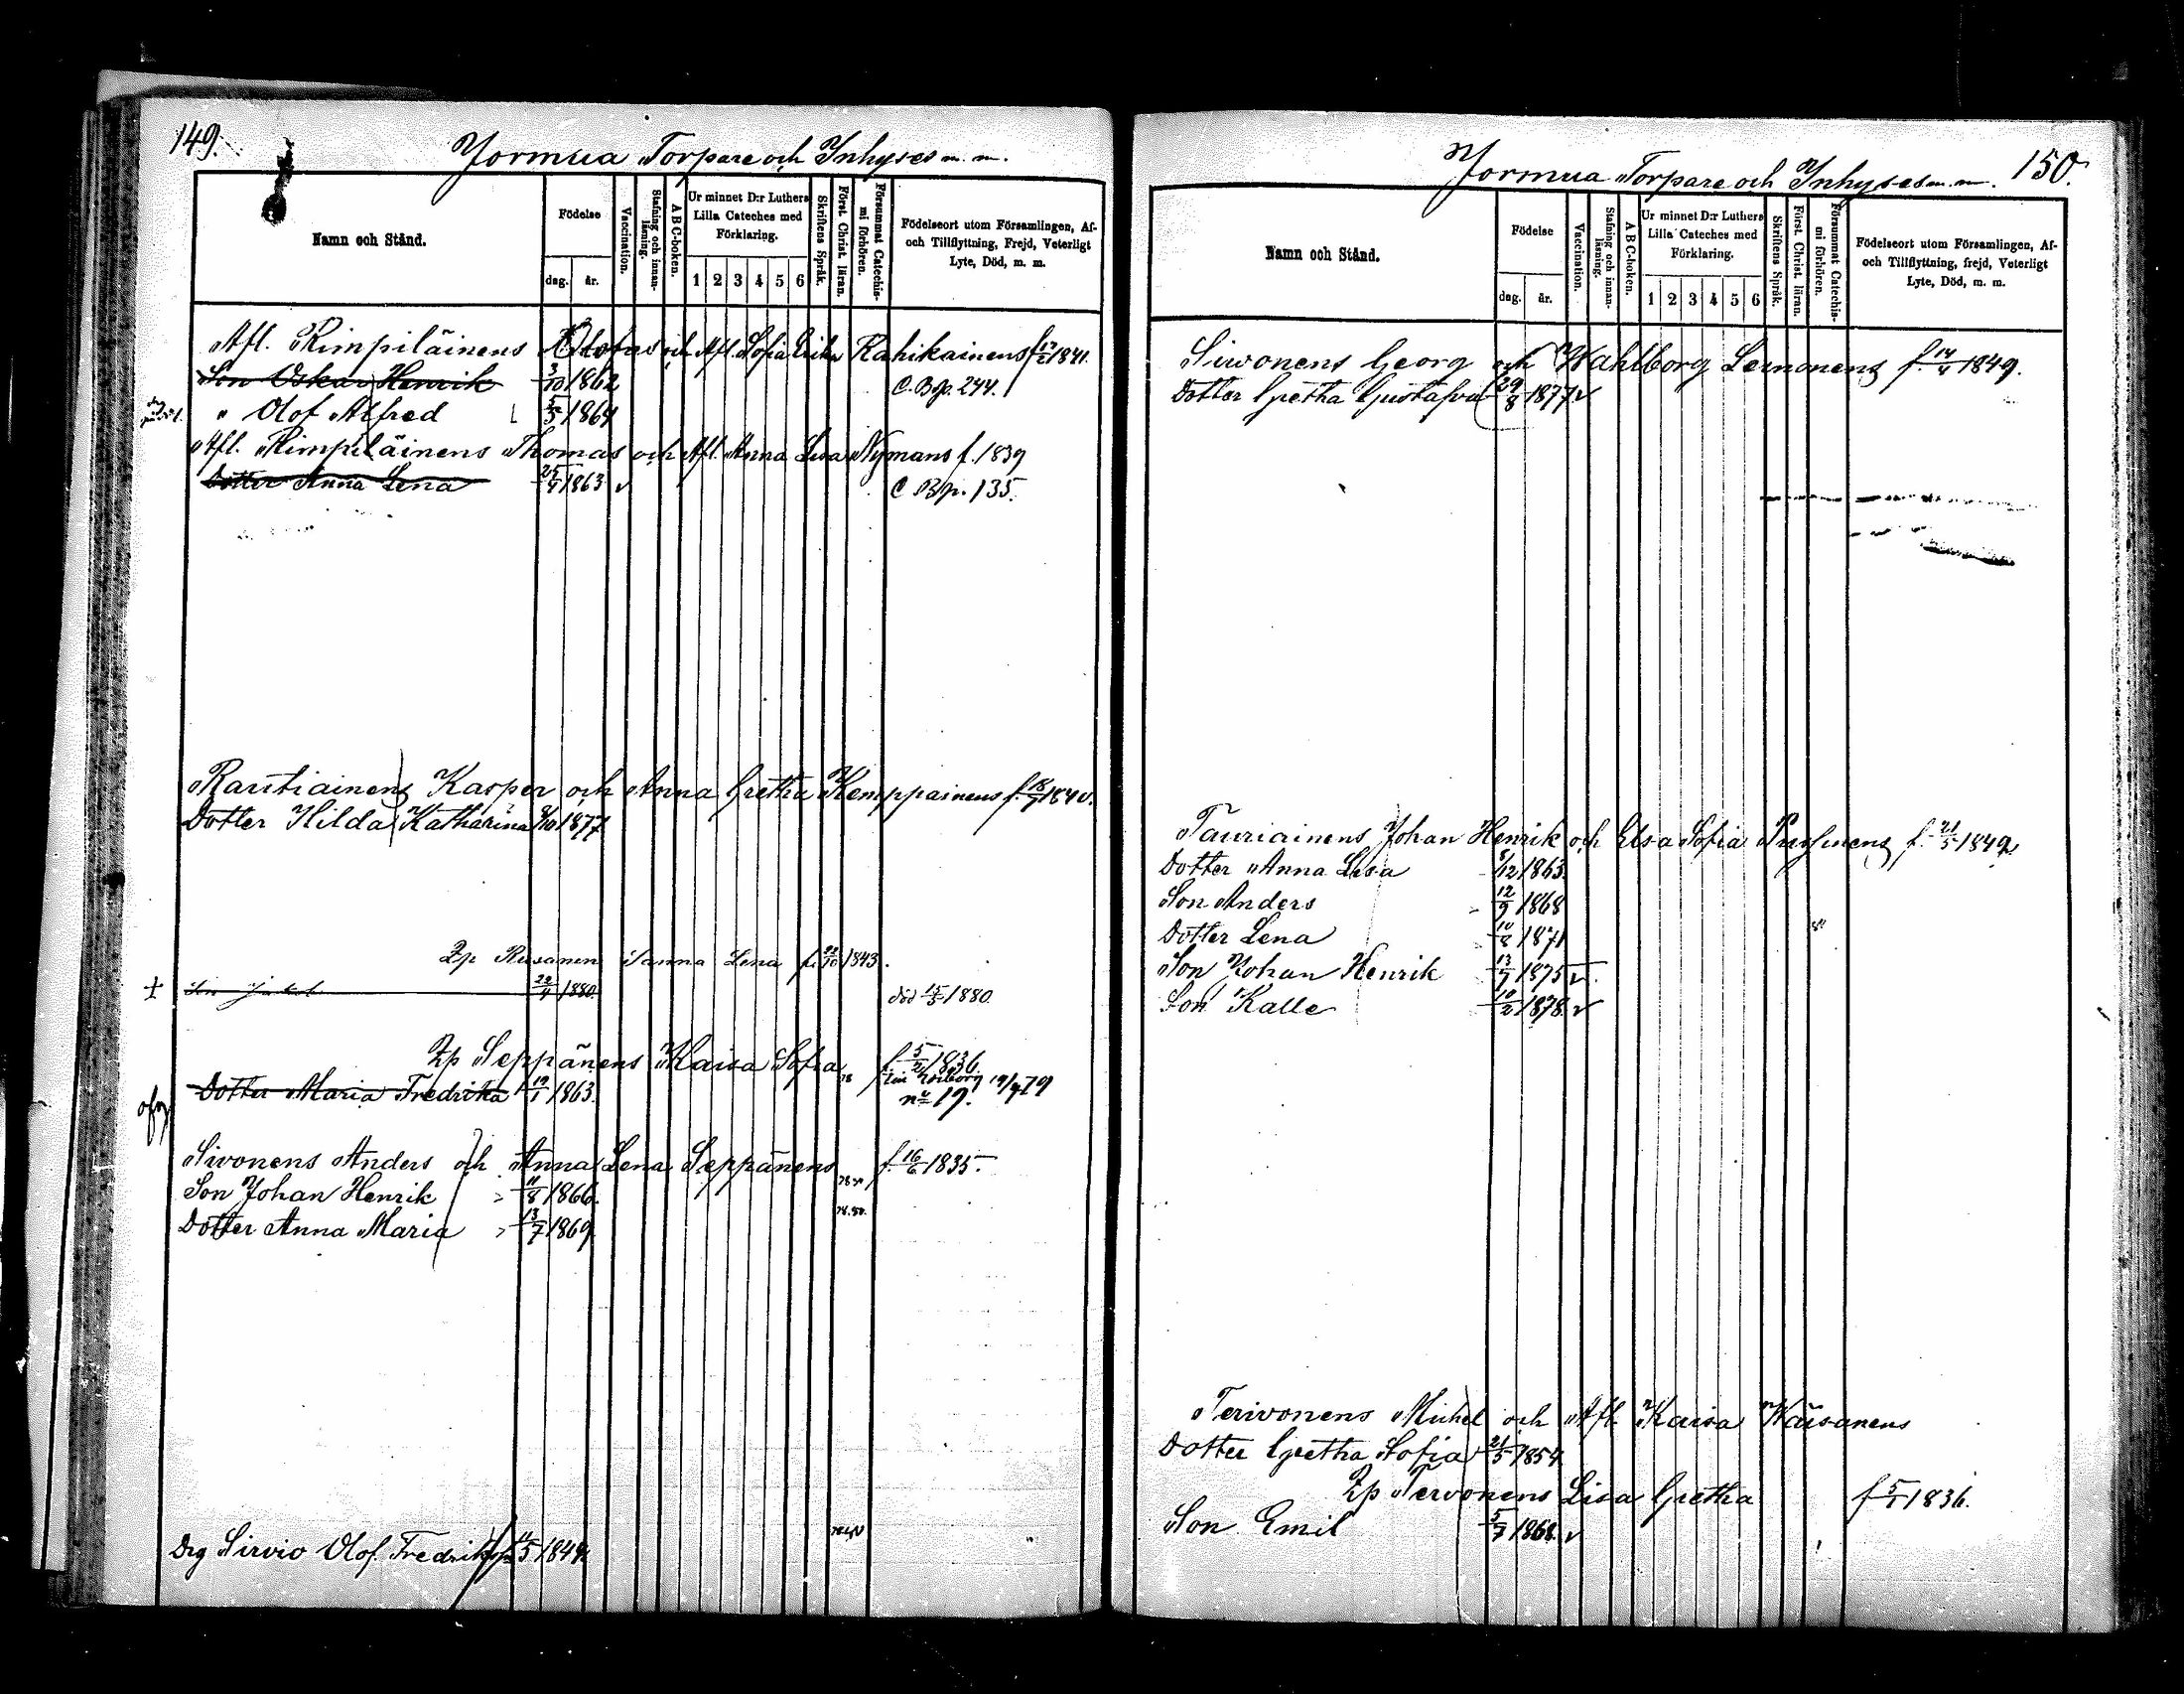 149.
Jormua Torpare och Inhyses m. m.
Namn och Stånd.
Födelse
dag. år.
Vaccination.
Stafning och innanläsning.
ABC-boken.
Ur minnet D:r Luthers Lilla Cateches med Förklaring.
1 2 3 4 5 6
Skriftens Språk.
Först. Christ. läran.
Försummat Catechismi förhören.
Födelseort utom Församlingen, Af- och Tillflyttning, Frejd, Veterligt Lyte, Död, m. m.
Afl. Rimpiläinens Olofus och Afl. Sofia Erika Rahikainens f 17/2 1841.
Son Oskar Henrik 3/10 1862 C. B. p. 244.
" Olof Alfred 5/5 1864
Afl. Rimpiläinens Thomas och Afl. Anna Lisa Nymans f. 1839
Dotter Anna Lena 25/4 1863 C. B. p. 135.
Rautiainens Kasper och Anna Gretha Kemppainens f. 18/7 1840.
Dotter Hilda Katharina 9/10 1877
Zp Rusanen Sanna Lena f. 22/10 1843.
Son Jakob 22/4 1880. död 15/5 1880.
Zp Seppänens Kaisa Sofia f 5/2 1836.
Dotter Maria Fredrika 19/1 1863. 19/4 79
no 19.
Sivonens Anders och Anna Lena Seppänens f. 16/6 1835.
Son Johan Henrik 11/8 1866.
Dotter Anna Maria 13/7 1869.
Drg Sirvio Olof Fredrik 1849.
150.
Jormua Torpare och Inhyses m. m.
Namn och Stånd.
Födelse
dag. år.
Vaccination.
Stafning och innanläsning.
ABC-boken.
Ur minnet D:r Luthers Lilla Cateches med Förklaring.
1 2 3 4 5 6
Skriftens Språk.
Först. Christ. läran.
Försummat Catechismi förhören.
Födelseort utom Församlingen, Af- och Tillflyttning, frejd, Veterligt Lyte, Död, m. m.
Siwonens Georg och Wahlborg Leinonens f 14/4 1849.
Dotter Gretha Gustafva 29/8 1877
Tauriainens Johan Henrik och Elsa Sofia f. 21/5 1842
Dotter Anna Lisa 8/12 1863
Son Anders 12/9 1868
Dotter Lena 1871
Son Johan Henrik 13/7 1875
Son Kalle 10/2 1878
Terivonens Michel och Afl. Kaisa Wäisänens
Dotter Gretha Sofia 21/5 1854
Zp Tervonens Lisa Gretha f 5/1 1836.
Son Emil 5/7 1868.